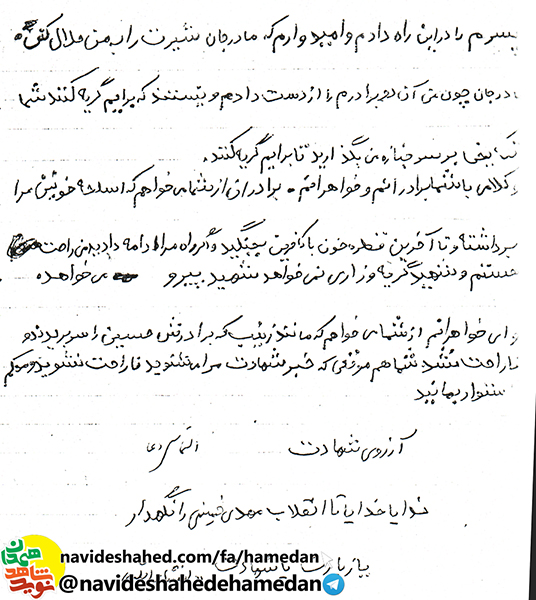 پسرم را در این راه دادم و امیدوارم که مادر جان شیرت را به من حلال کنی
مادر جان چون من آن دو برادرم را از دست دادم و نیستند که برایم گریه کنند شما
بر سر جنازه من بگذارید تا برایم گریه کنند.
و کلامی با شما برادرانم و خواهرانم. برادران از شما می‌خواهم که اسلحه خونین مرا
برداشته و تا آخرین قطره خون با کافران بجنگید و اگر راه مرا ادامه دادید من راحت
هستم و شهید گریه و زاری نمی‌خواهد شهید پیرو می‌خواهد
و ای خواهرانم از شما می‌خواهم که مانند زینب که برادرش حسین را سر بریدند و
ناراحت نشد شما هم موقعی که خبر شهادت مرا می‌شنوید ناراحت نشوید و محکم
و استوار بمانید
آرزوی شهادت التماس دعا
خدایا خدایا تا انقلاب مهدی خمینی را نگهدار
یا زیارت یا شهادت
navideshahed.com/fa/hamedan
@navideshahedehamedan
نوید شاهد همدان